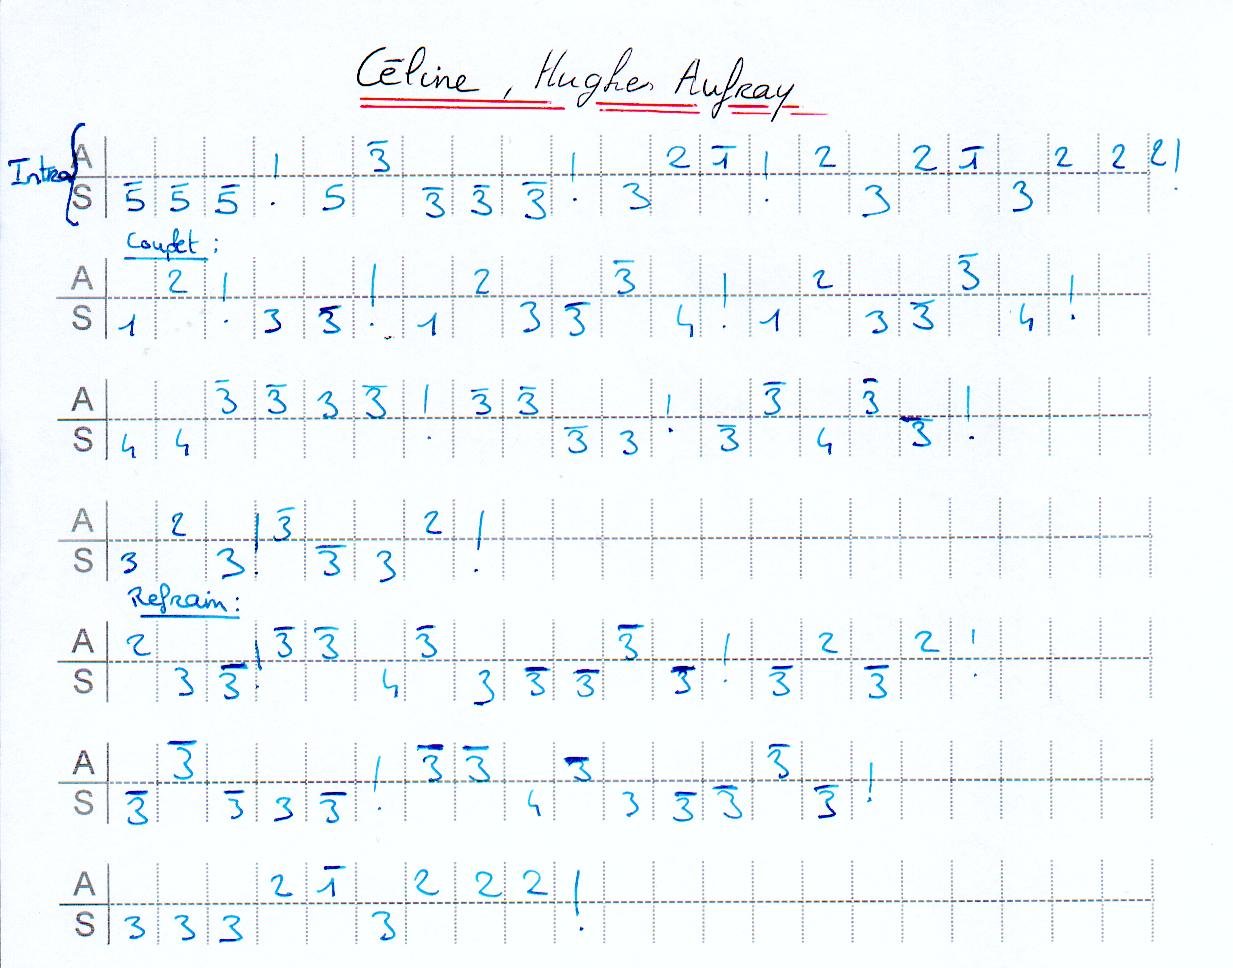 Céline, Hughes Aufray
Intro
A ! 3̅ ! 2 1̅ ! 2 2 1̅ 2 2 2 !
S 5̅ 5̅ 5̅ 5 3̅ 3̅ 3̅ 3 3 3
Couplet :
A 2 ! ! 2 3̅ ! 2 3̅ !
S 1 3 3̅ 1 3 3̅ 4 1 3 3̅ 4
A 3̅ 3̅ 3 3̅ ! 3̅ 3̅ ! 3̅ 3̅ !
S 4 4 3̅ 3 3̅ 4 3̅
A 2 ! 3̅ 2 !
S 3 3 3̅ 3
Refrain :
A 2 ! 3̅ 3̅ 3̅ 3̅ ! 2 2 !
S 3 3̅ 4 3 3̅ 3̅ 3̅ 3̅ 3̅
A 3̅ ! 3̅ 3̅ 3̅ 3̅ !
S 3̅ 3̅ 3 3̅ 4 3 3̅ 3̅ 3̅
A 2 1̅ 2 2 2 !
S 3 3 3 3